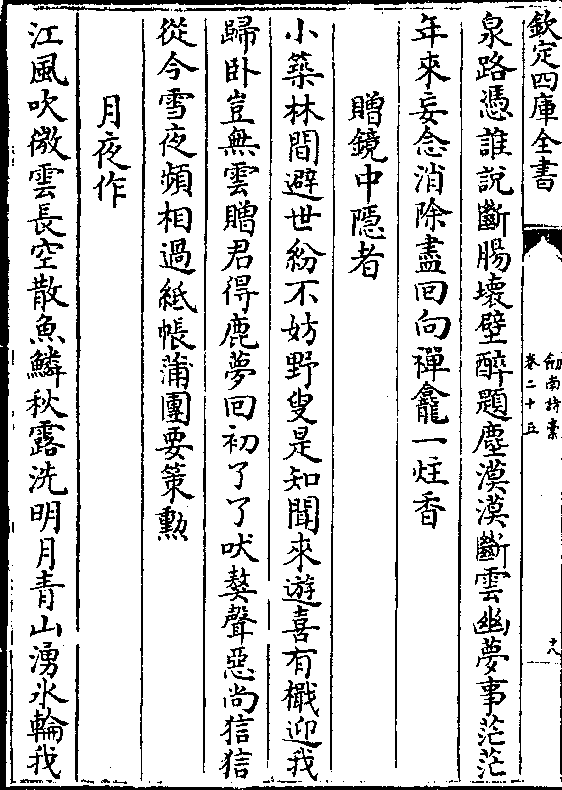 欽定四庫全書
劍南詩稾
卷二十五
十八
泉路憑誰說斷腸壞壁醉題塵漠漠斷雲幽夢事茫茫
年來妄念消除盡回向禪龕一炷香
贈鏡中隠者
小築林間避世紛不妨野叟是知聞來遊喜有檝迎我
歸卧豈無雲贈君得鹿夢回初了了吠獒聲惡尚狺狺
從今雪夜頻相過紙帳蒲團要策勲
月夜作
江風吹微雲長空散魚鱗秋露洗明月青山湧氷輪我